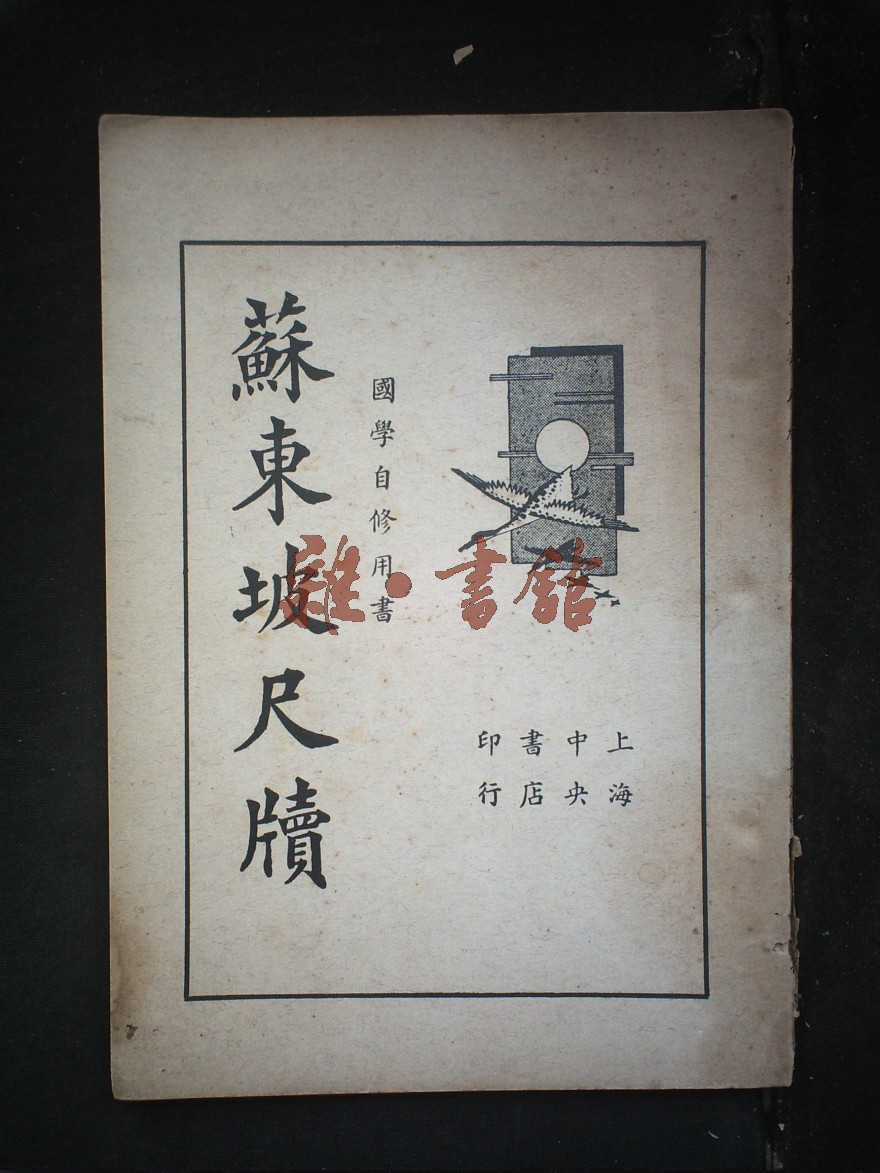 上海
中央
書店
印行
國學自修用書
蘇東坡尺牘
雜·書舘